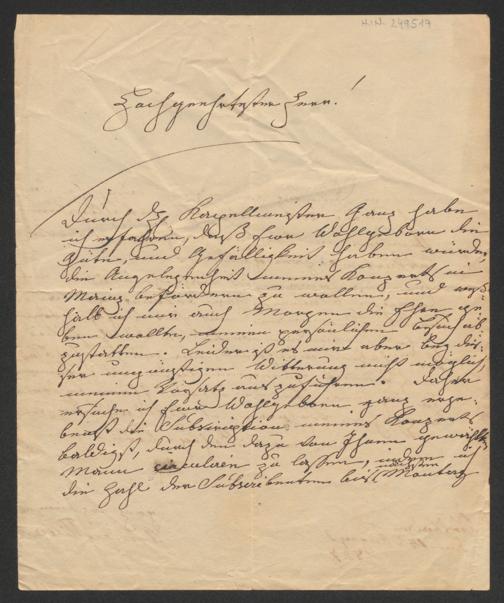 H.I.N. 249519
Hochgeehrtester Herr!
Durch den Kapellmeister Ganz habe
ich erfahren, daß Euer Wohlgeborn die
Güte, und Gefälligkeit haben würden,
die Angelegenheit meines Konzerts in
Mainz befördern zu wollen, und weß-
halb ich mir auch Morgen die Ehre ge-
ben wollte, meinen persönlichen Besuch ab
zustatten. Leider ist es mir aber bey die-
ser ungünstigen Witterung nicht möglich,
meinen Vorsatz auszuführen. Daher
ersuche ich Euer Wohlgeborn ganz erge-
benst die Subscription meines Konzerts
baldigst, durch den dazu von Ihnen gewählten
Mann circuliren zu lassen, indem ich
die Zahl der Subscribenten bis nächsten Montag